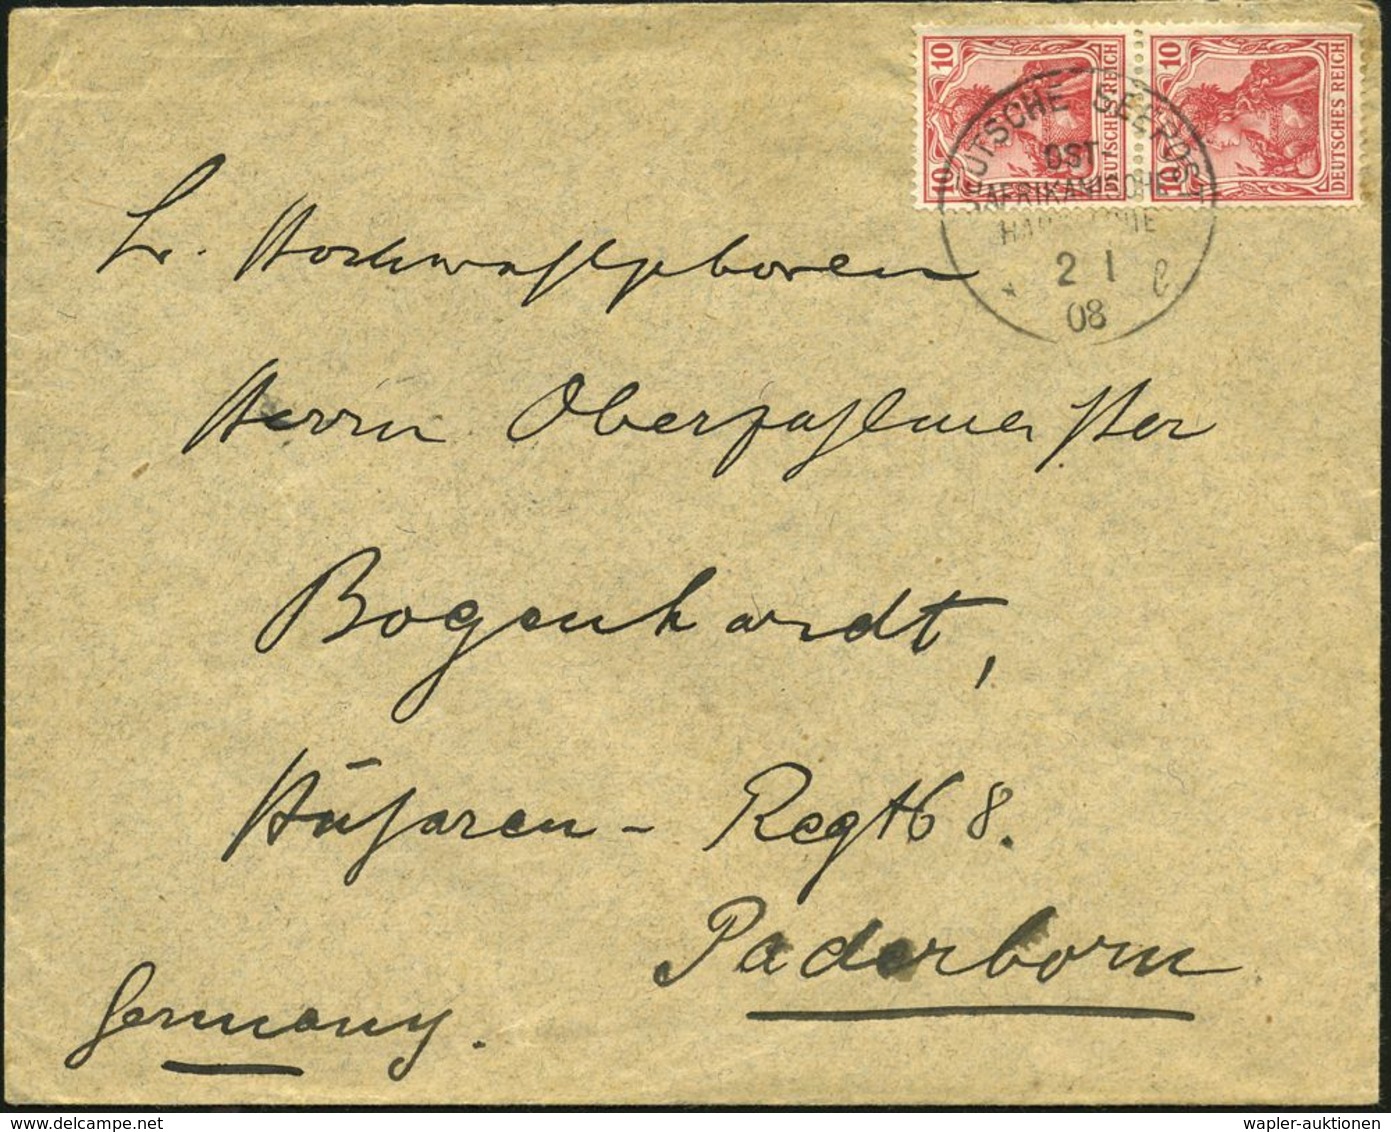 10 10 DEUTSCHES REICH
10 10 DEUTSCHES REICH
DEUTSCHE SEEPOST
OST-
AFRIKANISCHE
HAUPTLINIE
* 2 1 c
08
Sr. Hochwohlgeboren
Herrn Oberzahlmeister
Bogenhardt,
Husaren- Regt 8.
Paderborn
Germany.
wapler-auktionen